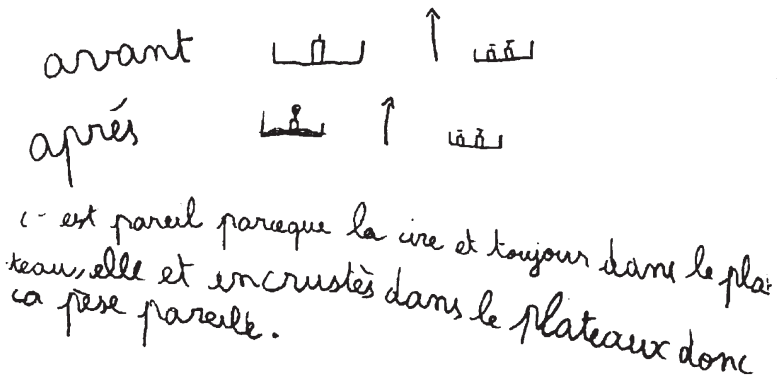 avant
aprés
c'est pareil parceque la cire et toujour dans le pla-
teau, elle et incrustès dans le plateaux donc
ca pèse pareille.